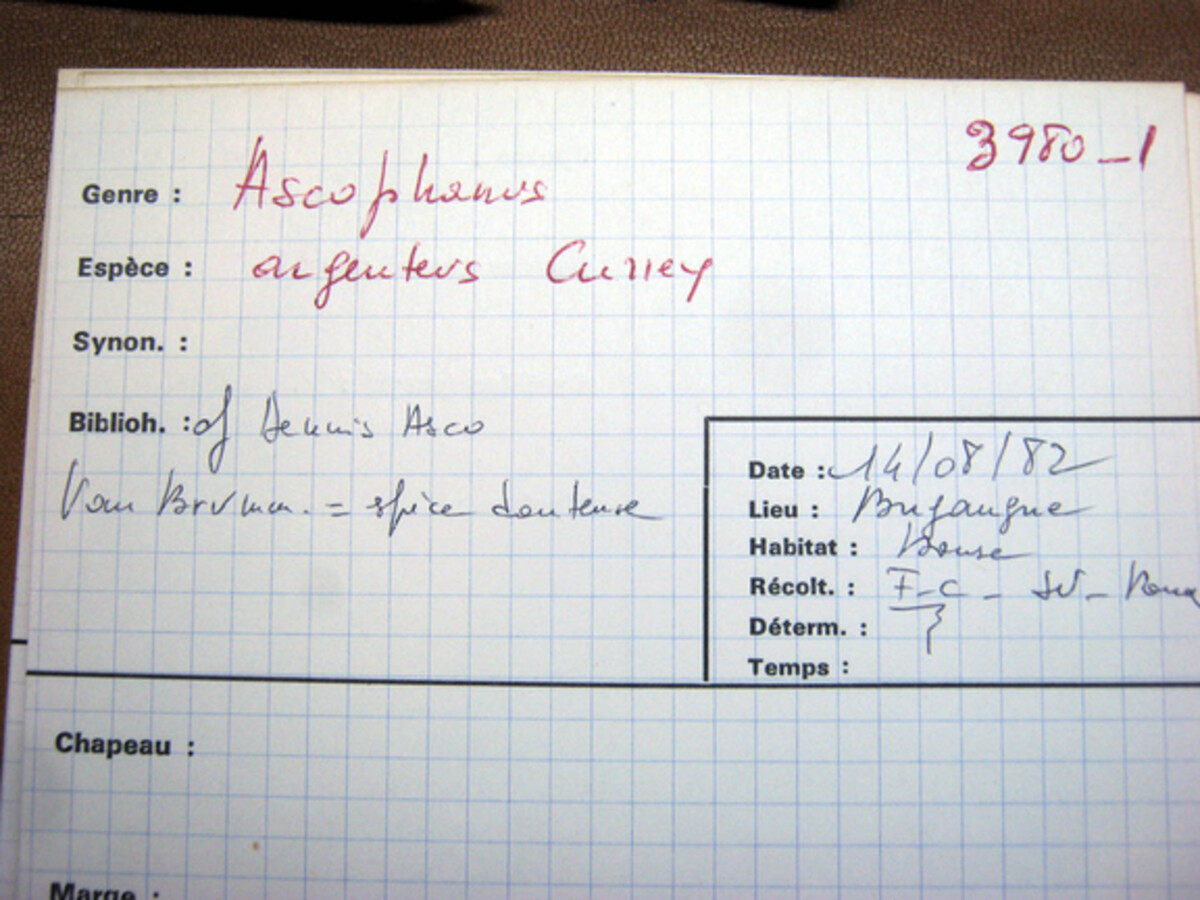 3980-1
Genre : Ascophanus
Espèce : argenteus Currey
Synon. :
Biblioh. : cf Dennis Asco
Van Brumm. = espèce douteuse
Date : 14/08/82
Lieu :
Habitat : Bouse
Récolt. : F-C - SV -
Déterm. :
Temps :
Chapeau :
Marge :